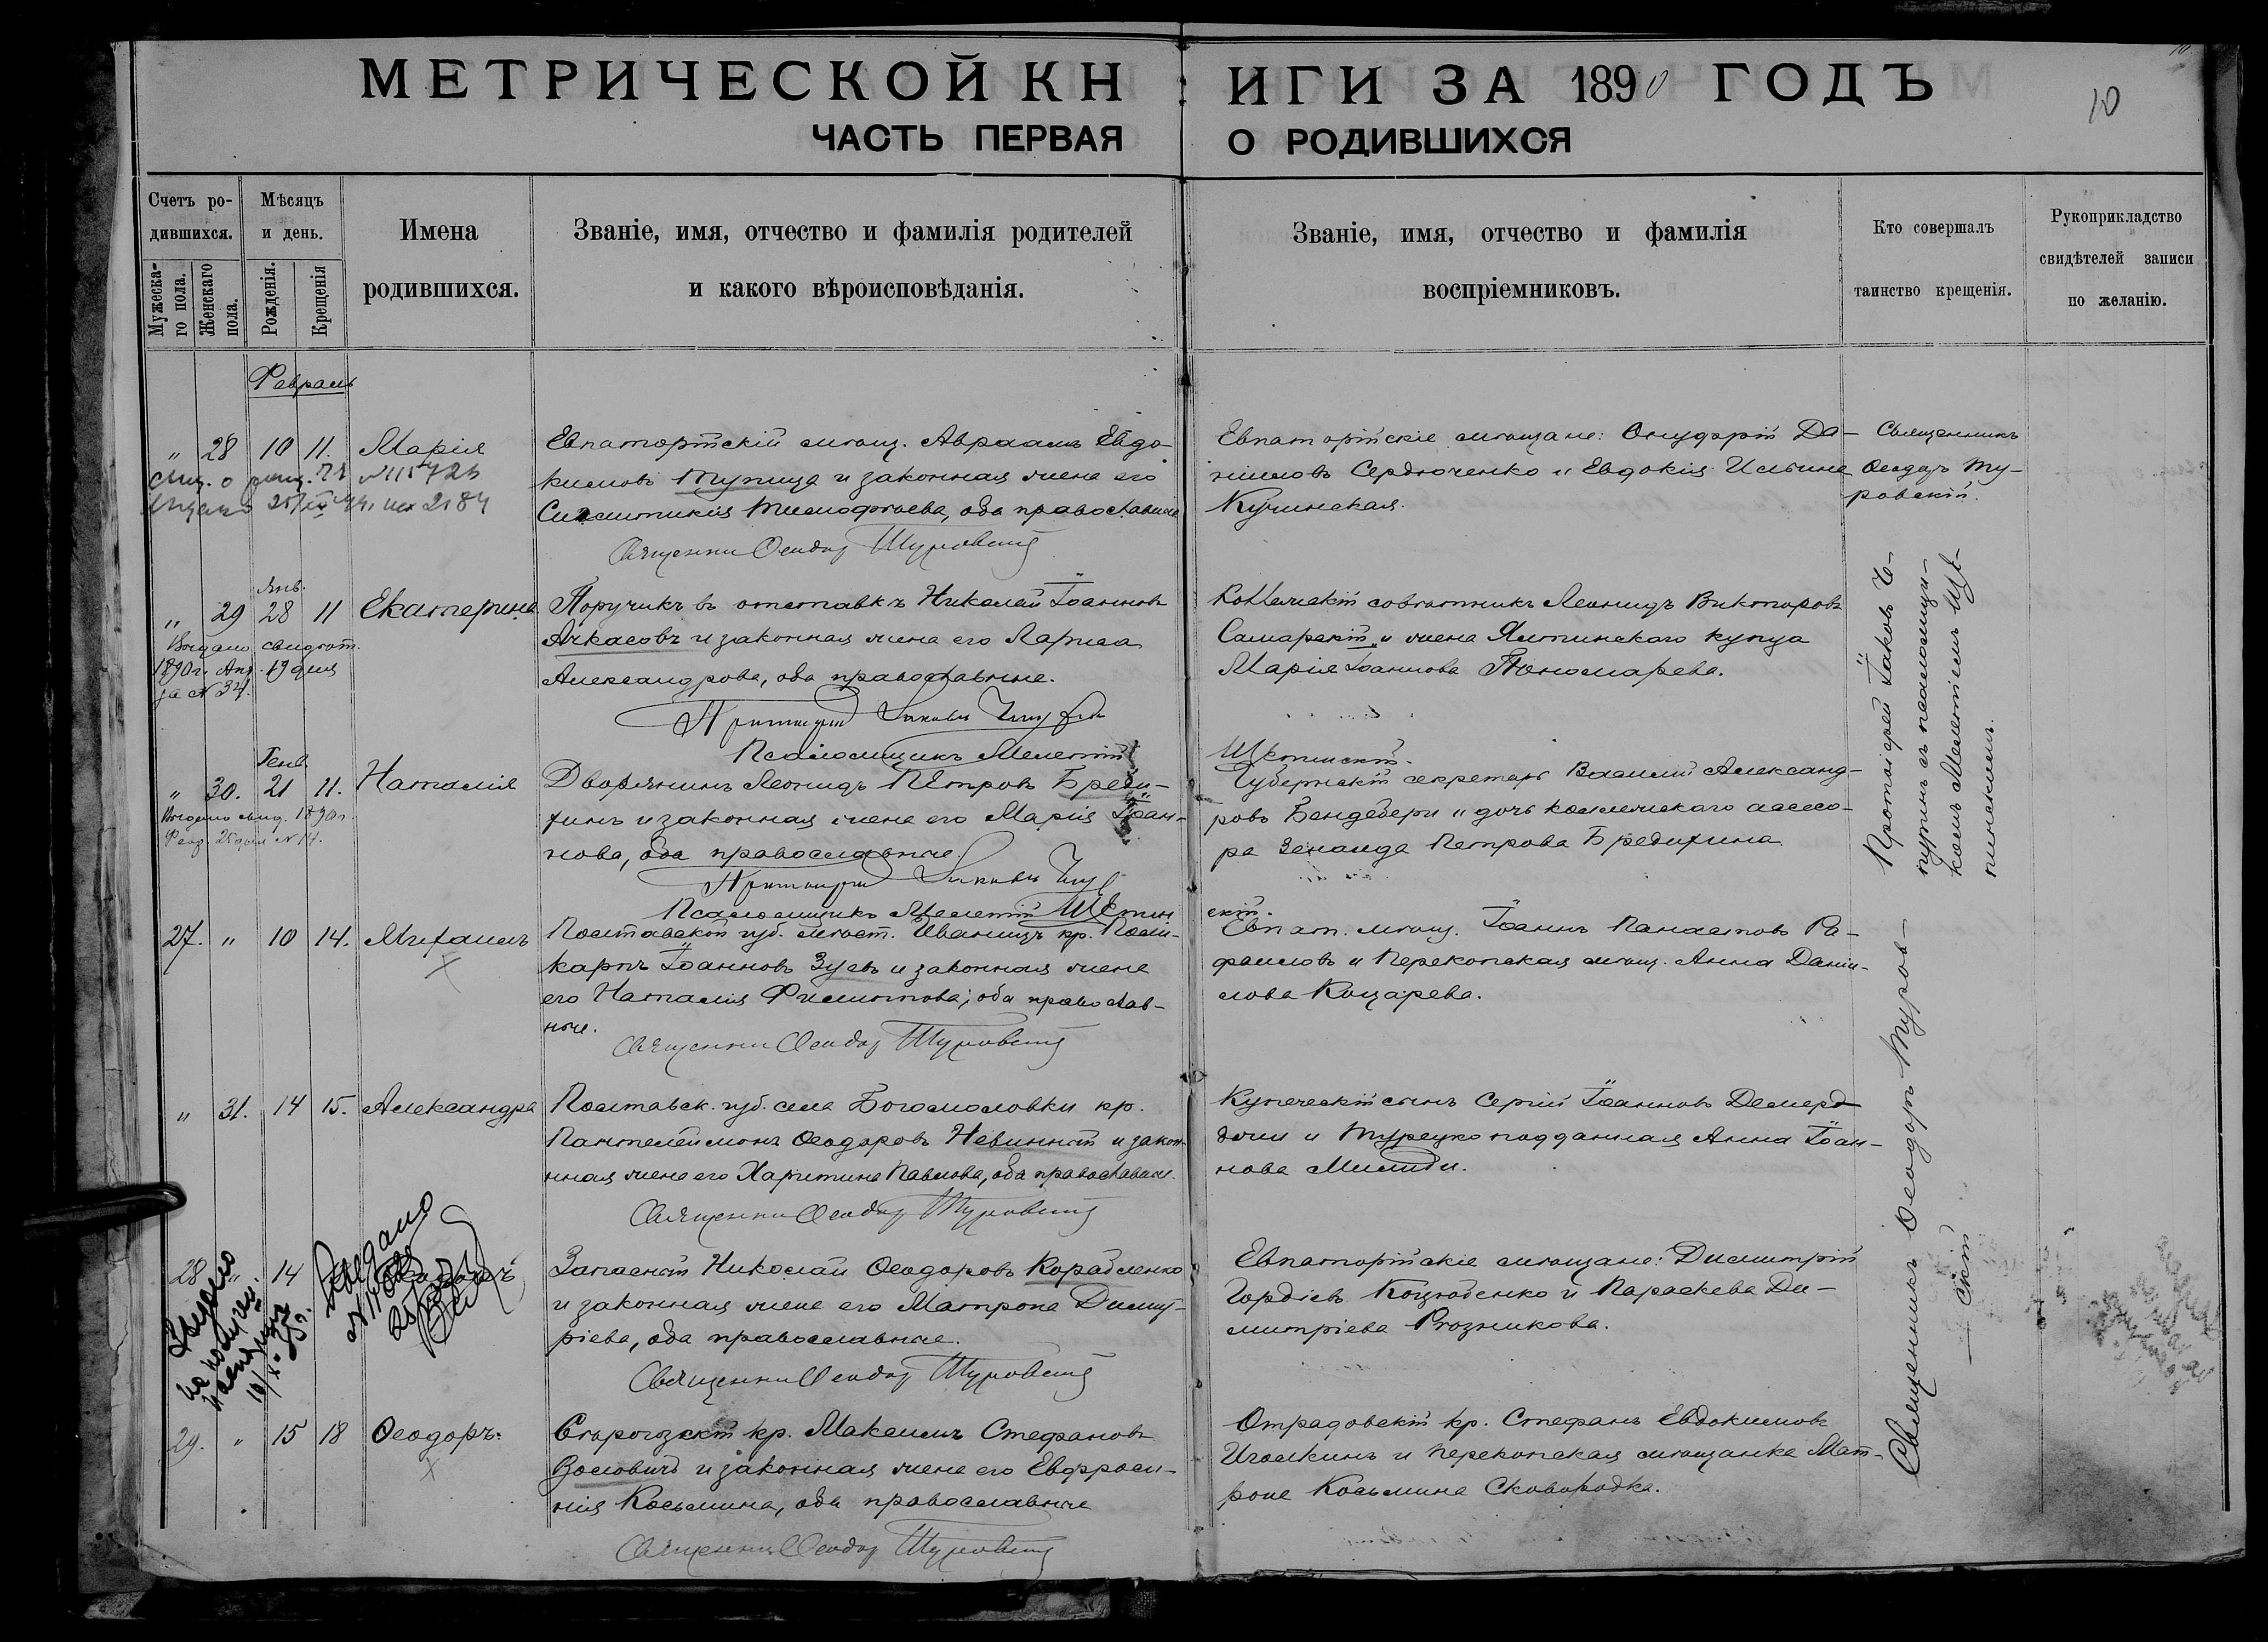 МЕТРИЧЕСКОЙ КНИГИ ЗА 1890 ГОДЪ
10
ЧАСТЬ ПЕРВАЯ О РОДИВШИХСЯ
Счетъ родившихся.
Мужескаго пола.
Женскаго пола.
Мѣсяцъ и день.
Рожденія.
Крещенія
Имена родившихся.
Званіе, имя, отчество и фамилія родителей
и какого вѣроисповѣданія.
Званіе, имя, отчество и фамилія
воспріемниковъ.
Кто совершалъ
таинство крещенія.
Рукоприкладство
свидѣтелей записи
по желанію.
Февраль
„ 28 10 11. Марія
Евпаторійскій мѣщ. Авраамъ Евдо-
кимовъ Тупица и законная жена его
Синклитикія Тимофѣева, оба православные
Священникъ Ѳеодоръ Туровскій
Евпаторійскіе мѣщане: Онуфрій Да-
ніиловъ Сердюченко и Евдокія Ильина
Кучинская.
Священникъ
Ѳеодоръ Ту-
ровскій.
Янв.
„ 29 28 11 Екатерина
Выдано свидѣт.
1890 г. Апр. 19 дня
за № 34.
Поручикъ въ отставкѣ Николай Іоанновъ
Ачкасовъ и законная жена его Лариса
Александрова, оба православные.
Протоіерей Іаковъ Чепуринъ
Псаломщикъ Мелетій
Щетинскій.
Коллежскій совѣтникъ Леонидъ Викторовъ
Самарскій и жена Ялтинскаго купца
Марія Іоаннова Пономарева.
Протоіерей Іаковъ Че-
пуринъ съ псаломщи-
комъ Мелетіемъ Ще-
тинскимъ.
Генв.
„ 30. 21 11. Наталія
Выдано свид. 1890 г.
Февр. 25 дня № 14.
Дворянинъ Леонидъ Петровъ Бреди-
хинъ и законная жена его Марія Іоан-
нова, оба православные.
Протоіерей Іаковъ Чепуринъ
Псаломщикъ Мелетій Щетин
скій.
Губернскій секретарь Василій Александ-
ровъ Бендебери и дочь коллежскаго ассесо-
ра Зенаида Петрова Бредихина
27. „ 10 14. Михаилъ
Полтавской губ. мѣст. Иваницъ кр. Поли-
карпъ Іоанновъ Зуевъ и законная жена
его Наталія Филиппова; оба православ-
ные.
Священникъ Ѳеодоръ Туровскій
Евпат. мѣщ. Іоаннъ Панаетовъ Ра-
фаиловъ и Перекопская мѣщ. Анна Даніи-
лова Коцарева.
„ 31. 14 15. Александра
Полтавск. губ. села Богомоловки кр.
Пантелеймонъ Ѳеодоровъ Невинный и закон-
нная жена его Харитина Павлова, оба православные.
Священникъ Ѳеодоръ Туровскій
Купеческій сынъ Сергій Іоанновъ Демерд
жи и Турецко подданная Анна Іоан-
нова Милиди.
28 „ 14
Запасный Николай Ѳеодоровъ Корабленко
и законная жена его Матрона Димит-
ріева, оба православные.
Священникъ Ѳеодоръ Туровскій
Евпаторійскіе мѣщане: Димитрій
Гордіевъ Коцюбенко и Параскева Ди-
митріева Розникова.
Священникъ Ѳеодоръ Туров-
скій
29. „ 15 18 Ѳеодоръ.
кр. Максимъ Стефановъ
и законная жена его Евфроси-
нія Косьмина, оба православные
Священникъ Ѳеодоръ Туровскій
Отрадовскій кр. Стефанъ Евдокимовъ
Иголкинъ и перекопская мѣщанка Мат-
рона Косьмина Сковородка.